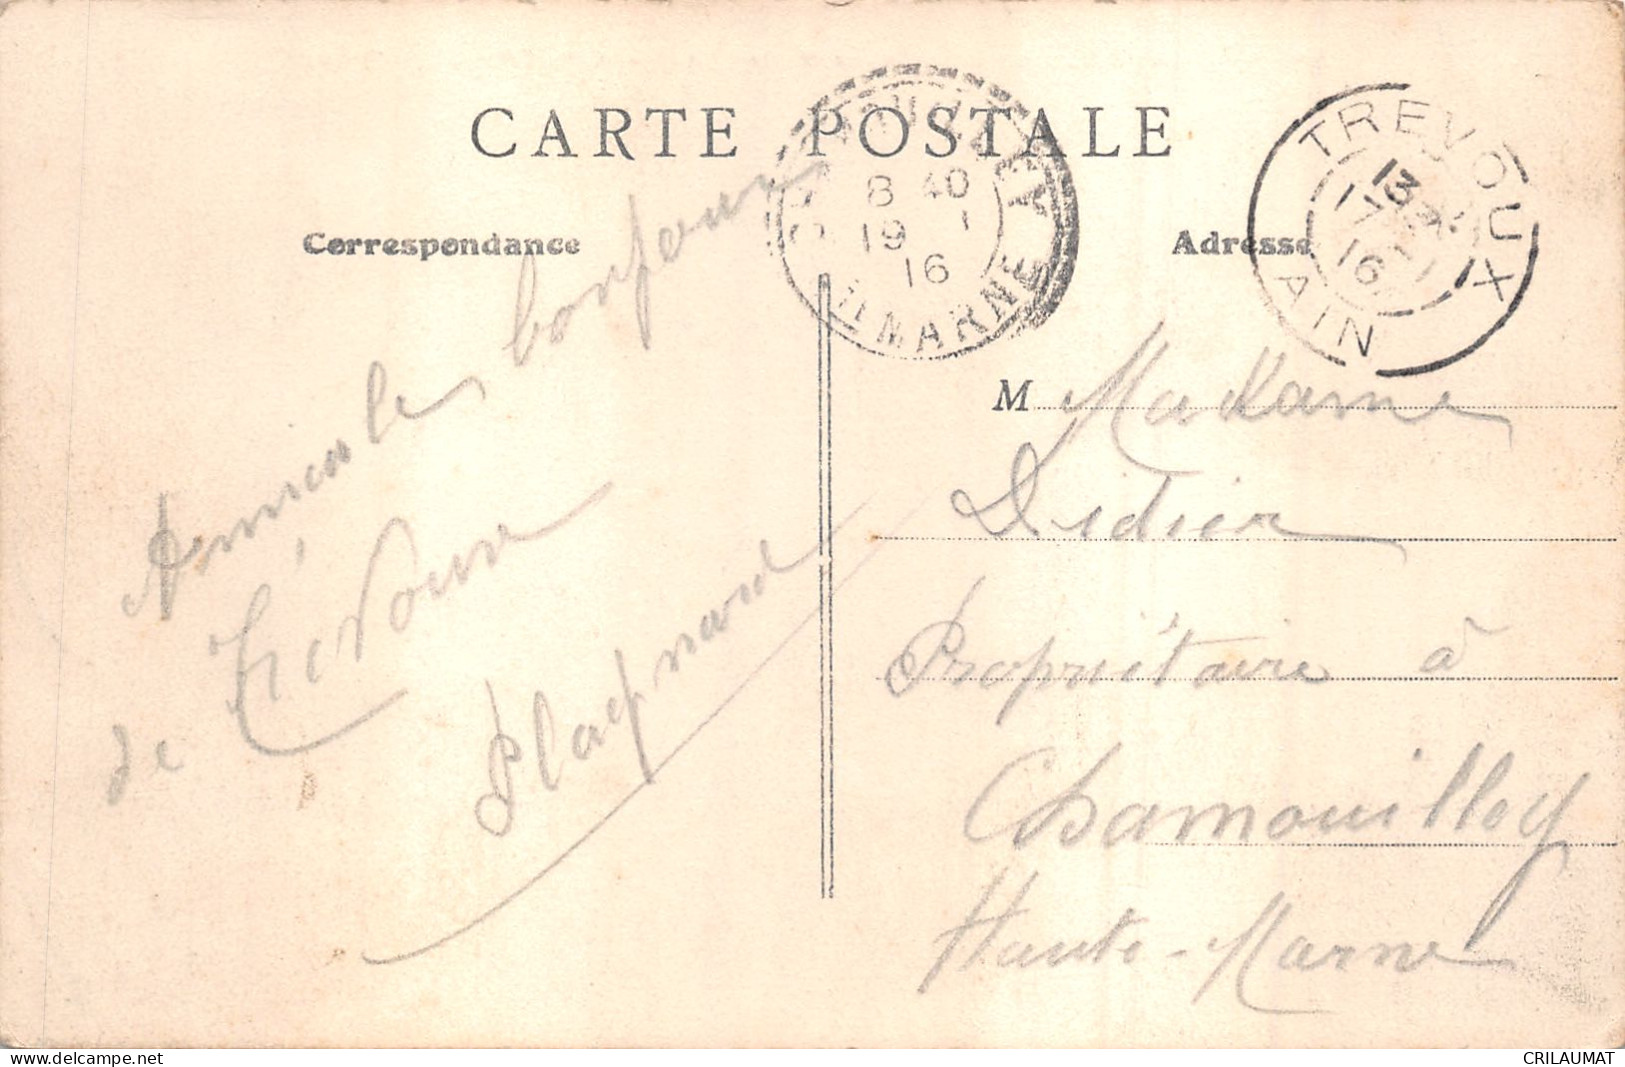 CARTE POSTALE
Correspondance
Adresse
CHAMOUILLEY
8 40
19 1
16
Hte MARNE
TREVOUX
13
17 1
16
AIN
Amicale bonjour
de Trévoux
Plagnard
M Madame
Didier
Propriétaire à
Chamouilley
Haute-Marne
www.delcampe.net
CRILAUMAT